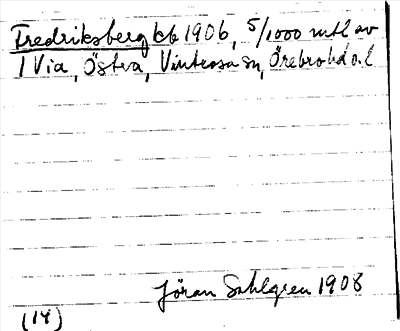 Fredriksberg kb 1906, 5/1000 mtl av
1 Via, Östra, Vintrosa sn, Örebro hd o. l
Jöran Sahlgren 1908
(14)